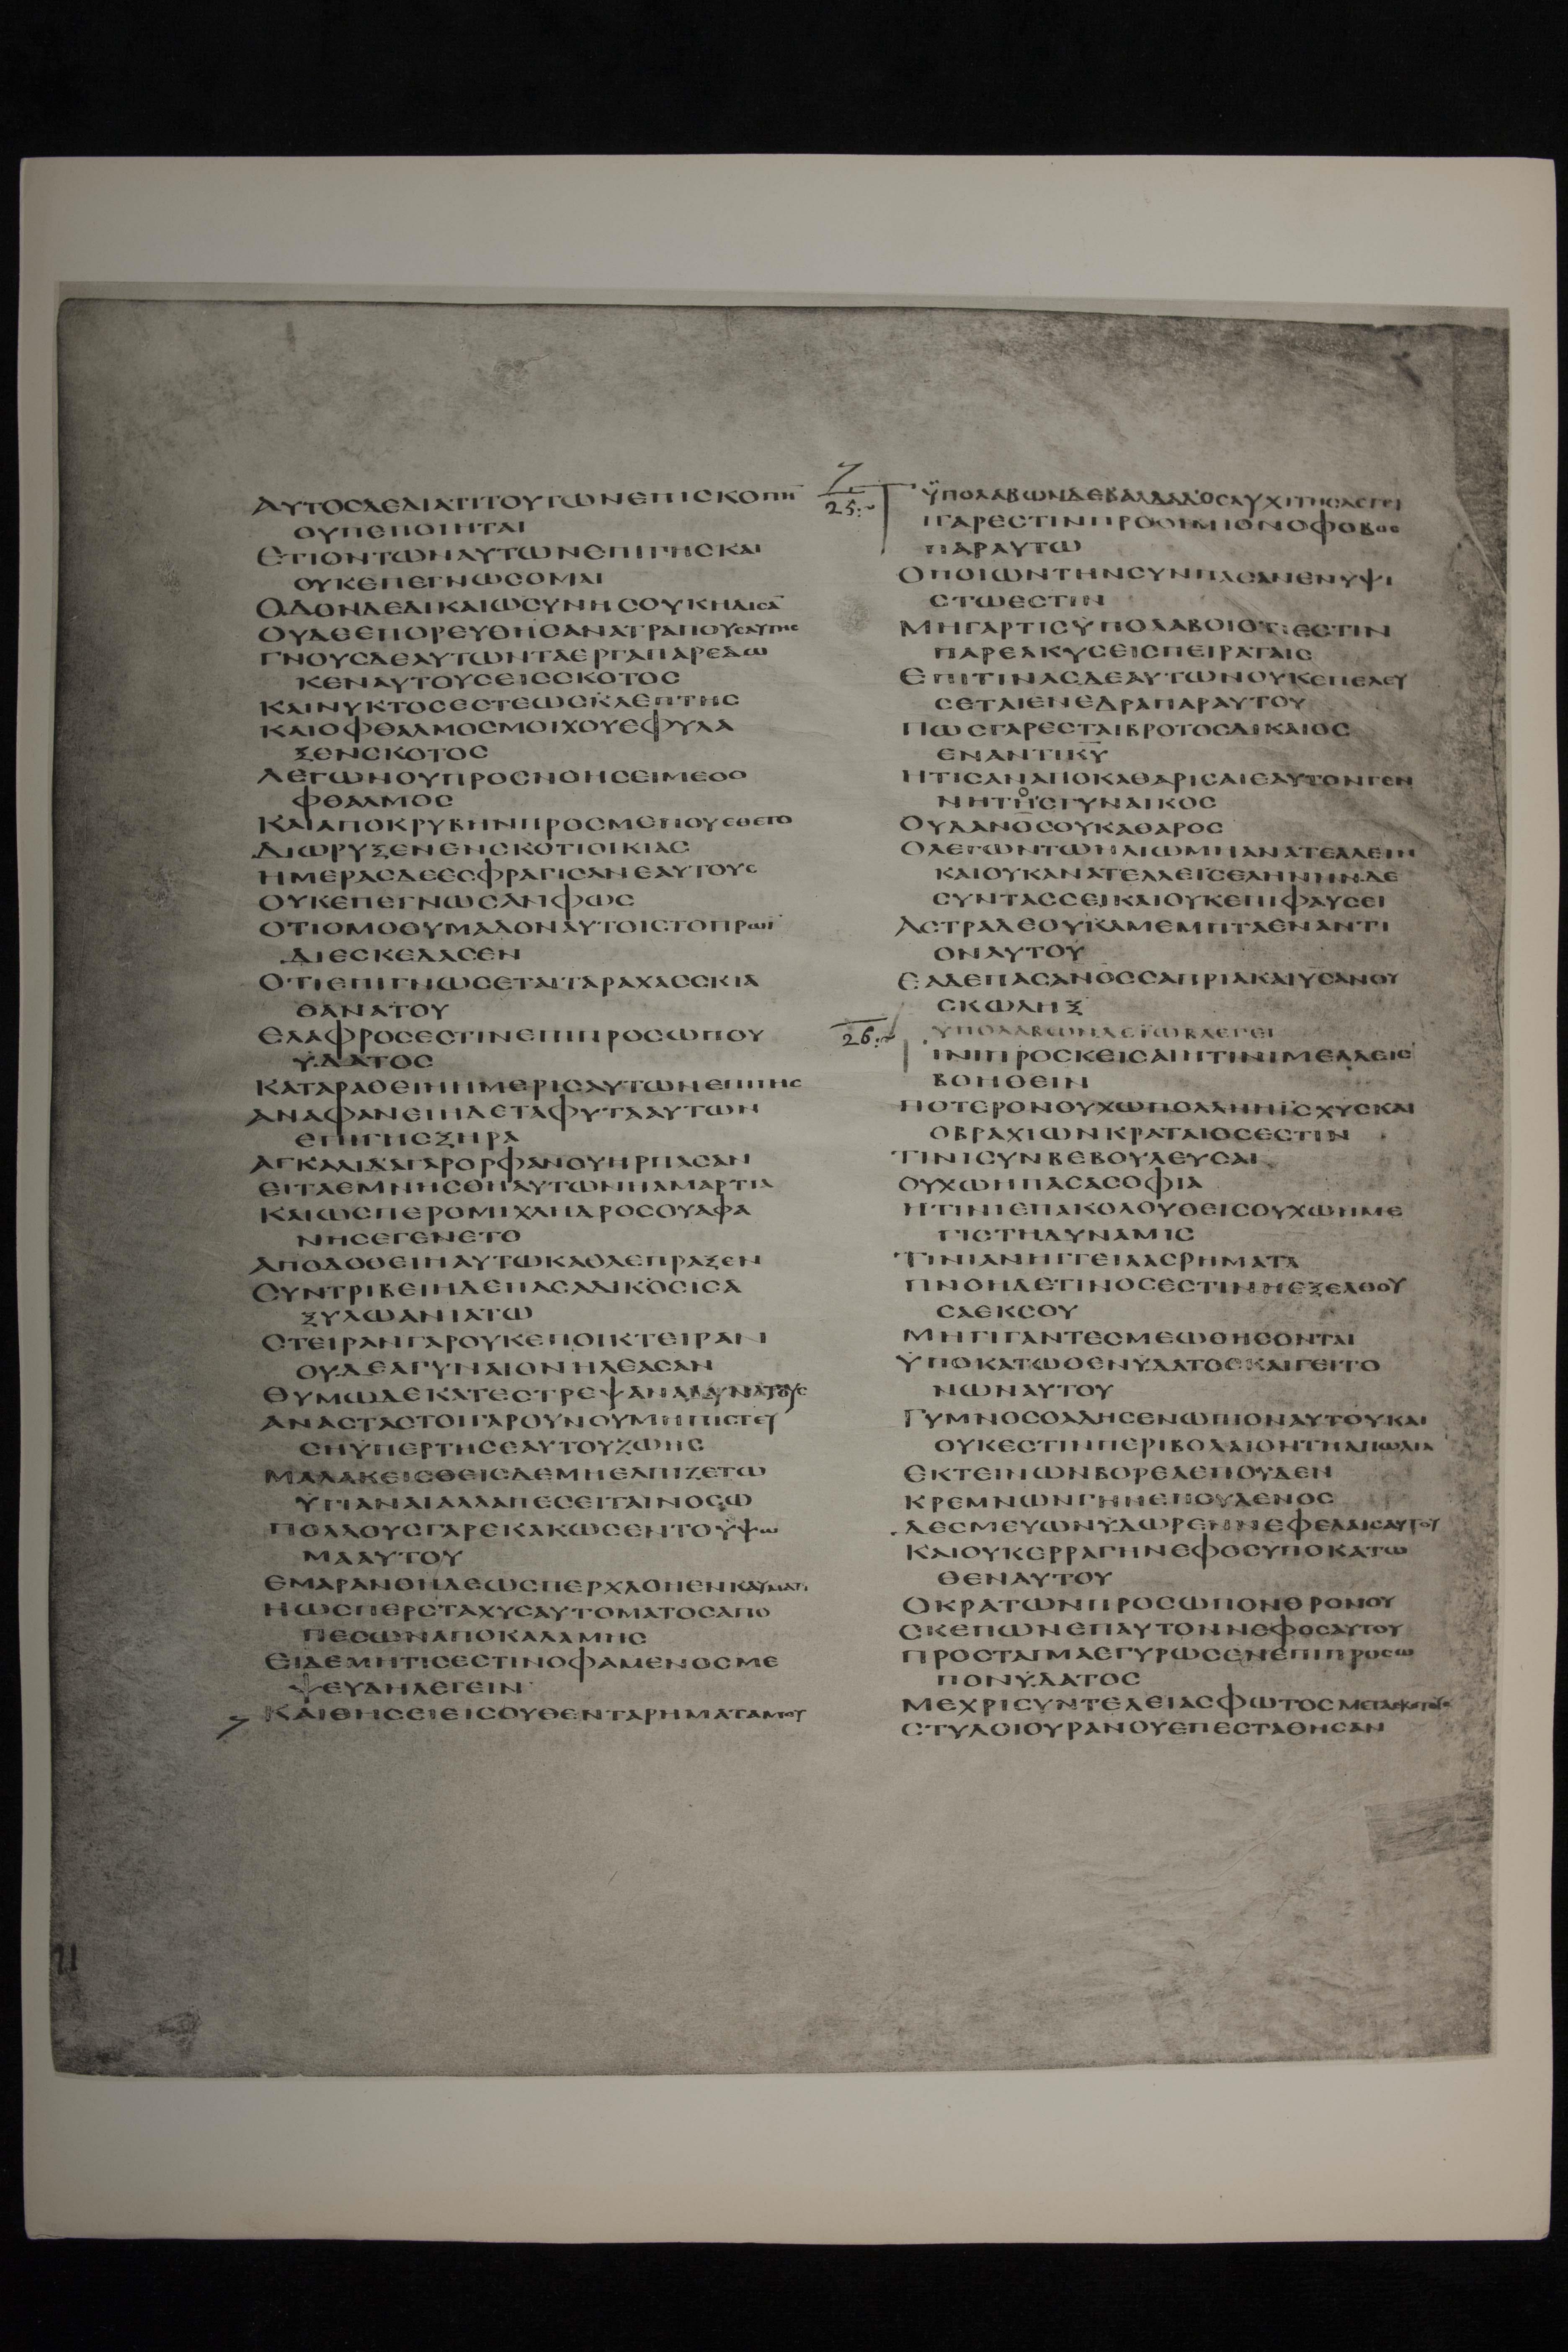 ΑΥΤΟCΔΕΔΙΑΤΙΤΟΥΤΩΝΕΠΙCΚΟΠΗ
ΟΥΠΕΠΟΙΗΤΑΙ
ΕΤΙΟΝΤΩΝΑΥΤΩΝΕΠΙΓΗCΚΑΙ
ΟΥΚΕΠΕΓΝΩCΟΜΑΙ
ΟΔΟΝΔΕΔΙΚΑΙΩCΥΝΗCΟΥΚΗΔΙCΑ̅
ΟΥΔΕΕΠΟΡΕΥΘΗCΑΝΑΤΡΑΠΟΥCΑΥΤΗC
ΓΝΟΥCΔΕΑΥΤΩΝΤΑΕΡΓΑΠΑΡΕΔΩ
ΚΕΝΑΥΤΟΥCΕΙCCΚΟΤΟC
ΚΑΙΝΥΚΤΟCΕCΤΕΩCΚΛΕΠΤΗC
ΚΑΙΟΦΘΑΛΜΟCΜΟΙΧΟΥΕΦΥΛΑ
ΞΕΝCΚΟΤΟC
ΛΕΓΩΝΟΥΠΡΟCΝΟΗCΕΙΜΕΟΟ
ΦΘΑΛΜΟC
ΚΑΙΑΠΟΚΡΥΒΗΝΠΡΟCΜΕΠΟΥΕΘΕΤΟ
ΔΙΩΡΥΞΕΝΕΝCΚΟΤΙΟΙΚΙΑC
ΗΜΕΡΑCΔΕΕCΦΡΑΓΙCΑΝΕΑΥΤΟΥC
ΟΥΚΕΠΕΓΝΩCΑΝΦΩC
ΟΤΙΟΜΟΘΥΜΑΔΟΝΑΥΤΟΙCΤΟΠΡΩΪ
ΔΙΕCΚΕΔΑCΕΝ
ΟΤΙΕΠΙΓΝΩCΕΤΑΙΤΑΡΑΧΑCCΚΙΑ
ΘΑΝΑΤΟΥ
ΕΛΑΦΡΟCΕCΤΙΝΕΠΙΠΡΟCΩΠΟΥ
ΫΔΑΤΟC
ΚΑΤΑΡΑΘΕΙΗΗΜΕΡΙCΑΥΤΩΝΕΠΙΓΗC
ΑΝΑΦΑΝΕΙΗΔΕΤΑΦΥΤΑΑΥΤΩΝ
ΕΠΙΓΗCΞΗΡΑ
ΑΓΚΑΛΙΔΑΓΑΡΟΡΦΑΝΟΥΗΡΠΑCΑΝ
ΕΙΤΑΕΜΝΗCΘΗΑΥΤΩΝΗΑΜΑΡΤΙΑ
ΚΑΙΩCΠΕΡΟΜΙΧΛΗΔΡΟCΟΥΑΦΑ
ΝΗCΕΓΕΝΕΤΟ
ΑΠΟΔΟΘΕΙΗΑΥΤΩΚΑΘΑΕΠΡΑΞΕΝ
CΥΝΤΡΙΒΕΙΗΔΕΠΑCΑΔΙΚΟCΙCΑ
ΞΥΛΩΑΝΙΑΤΩ
CΤΕΙΡΑΝΓΑΡΟΥΚΕΠΟΙΚΤΕΙΡΑΝ
ΟΥΔΕΑΓΥΝΑΙΟΝΗΛΕΑCΑΝ
ΘΥΜΩΔΕΚΑΤΕCΤΡΕΨΑΝΑΔΥΝΑΤΟΥC
ΑΝΑCΤΑCΤΟΙΓΑΡΟΥΝΟΥΜΗΠΙCΤΕΥ
CΗΫΠΕΡΤΗCΕΑΥΤΟΥΖΩΗC
ΜΑΛΑΚΕΙCΘΕΙCΔΕΜΗΕΛΠΙΖΕΤΩ
ΫΓΙΑΝΑΙΑΛΛΑΠΕCΕΙΤΑΙΝΟCΩ
ΠΟΛΛΟΥCΓΑΡΕΚΑΚΩCΕΝΤΟΫΨΩ
ΜΑΑΥΤΟΥ
ΕΜΑΡΑΝΘΗΔΕΩCΠΕΡΧΛΟΗΕΝΚΑΥΜΑΤΙ
ΗΩCΠΕΡCΤΑΧΥCΑΥΤΟΜΑΤΟCΑΠΟ
ΠΕCΩΝΑΠΟΚΑΛΑΜΗC
ΕΙΔΕΜΗΤΙCΕCΤΙΝΟΦΑΜΕΝΟCΜΕ
ΨΕΥΔΗΛΕΓΕΙΝ
ΚΑΙΘΗCΕΙΕΙCΟΥΘΕΝΤΑΡΗΜΑΤΑΜΟΥ
25
ΫΠΟΛΑΒΩΝΔΕΒΑΛΔΑΔΟCΑΥΧΙΤΗCΛΕΓΕΙ
ΙΓΑΡΕCΤΙΝΠΡΟΟΙΜΙΟΝΟΦΟΒΟC
ΠΑΡΑΥΤΩ
ΟΠΟΙΩΝΤΗΝCΥΝΠΑCΑΝΕΝΥΨΙ
CΤΩΕCΤΙΝ
ΜΗΓΑΡΤΙCΫΠΟΛΑΒΟΙΟΤΙΕCΤΙΝ
ΠΑΡΕΛΚΥCΕΙCΠΕΙΡΑΤΑΙC
ΕΠΙΤΙΝΑCΔΕΑΥΤΩΝΟΥΚΕΠΕΛΕΥ
CΕΤΑΙΕΝΕΔΡΑΠΑΡΑΥΤΟΥ
ΠΩCΓΑΡΕCΤΑΙΒΡΟΤΟCΔΙΚΑΙΟC
ΕΝΑΝΤΙΚ̅Υ̅
ΗΤΙCΑΝΑΠΟΚΑΘΑΡΙCΑΙΕΑΥΤΟΝΓΕΝ
ΝΗΤΟCΓΥΝΑΙΚΟC
ΟΥΔΑΝΟCΟΥΚΑΘΑΡΟC
ΟΛΕΓΩΝΤΩΗΛΙΩΜΗΑΝΑΤΕΛΛΕΙΝ
ΚΑΙΟΥΚΑΝΑΤΕΛΛΕΙCΕΛΗΝΗΝΔΕ
CΥΝΤΑCCΕΙΚΑΙΟΥΚΕΠΙΦΑΥCΕΙ
ΑCΤΡΑΔΕΟΥΚΑΜΕΜΠΤΑΕΝΑΝΤΙ
ΟΝΑΥΤΟΥ
ΕΑΔΕΠΑCΑΝΟCCΑΠΡΙΑΚΑΙΥCΑΝΟΥ
CΚΩΛΗΞ
26
ΥΠΟΛΑΒΩΝΔΕΪΩΒΛΕΓΕΙ
ΙΝΙΠΡΟCΚΕΙCΑΙΗΤΙΝΙΜΕΛΛΕΙC
ΒΟΗΘΕΙΝ
ΠΟΤΕΡΟΝΟΥΧΩΠΟΛΛΗΗΪCΧΥCΚΑΙ
ΟΒΡΑΧΙΩΝΚΡΑΤΑΙΟCΕCΤΙΝ
ΤΙΝΙCΥΝΒΕΒΟΥΛΕΥCΑΙ
ΟΥΧΩΗΠΑCΑCΟΦΙΑ
ΗΤΙΝΙΕΠΑΚΟΛΟΥΘΕΙCΟΥΧΩΗΜΕ
ΓΙCΤΗΔΥΝΑΜΙC
ΤΙΝΙΑΝΗΓΓΕΙΛΑCΡΗΜΑΤΑ
ΠΝΟΗΔΕΤΙΝΟCΕCΤΙΝΗΕΞΕΛΘΟΥ
CΑΕΚCΟΥ
ΜΗΓΙΓΑΝΤΕCΜΕΩΘΗCΟΝΤΑΙ
ΫΠΟΚΑΤΩΘΕΝΥΔΑΤΟCΚΑΙΓΕΙΤΟ
ΝΩΝΑΥΤΟΥ
ΓΥΜΝΟCΟΑΔΗCΕΝΩΠΙΟΝΑΥΤΟΥΚΑΙ
ΟΥΚΕCΤΙΝΠΕΡΙΒΟΛΑΙΟΝΤΗΑΠΩΛΙΑ
ΕΚΤΕΙΝΩΝΒΟΡΕΑΕΠΟΥΔΕΝ
ΚΡΕΜΝΩΝΓΗΝΕΠΟΥΔΕΝΟC
ΔΕCΜΕΥΩΝΥΔΩΡΕΝΝΕΦΕΛΑΙCΑΥΤΟΥ
ΚΑΙΟΥΚΕΡΡΑΓΗΝΕΦΟCΥΠΟΚΑΤΩ
ΘΕΝΑΥΤΟΥ
ΟΚΡΑΤΩΝΠΡΟCΩΠΟΝΘΡΟΝΟΥ
CΚΕΠΩΝΕΠΑΥΤΟΝΝΕΦΟCΑΥΤΟΥ
ΠΡΟCΤΑΓΜΑΕΓΥΡΩCΕΝΕΠΙΠΡΟCΩ
ΠΟΝΫΔΑΤΟC
ΜΕΧΡΙCΥΝΤΕΛΕΙΑCΦΩΤΟCΜΕΤΑCΚΟΤΟΥC
CΤΥΛΟΙΟΥΡΑΝΟΥΕΠΕCΤΑΘΗCΑΝ